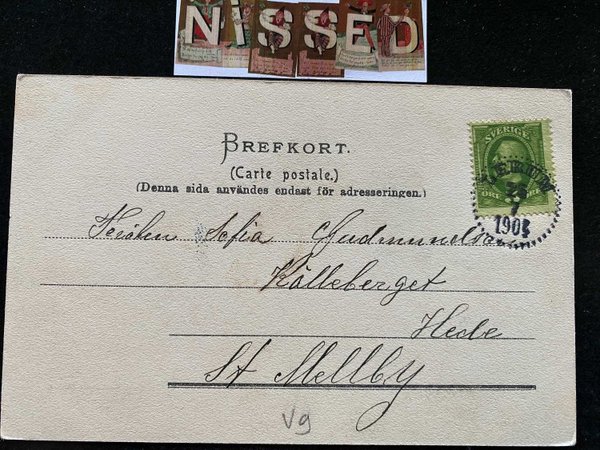 NISSED
BREFKORT.
(Carte postale.)
(Denna sida användes endast för adresseringen.)
SVERIGE
ÖRE
25
7
190
Fröken Sofia Gudmundson
Källeberget
Hede
St Mellby
Vg